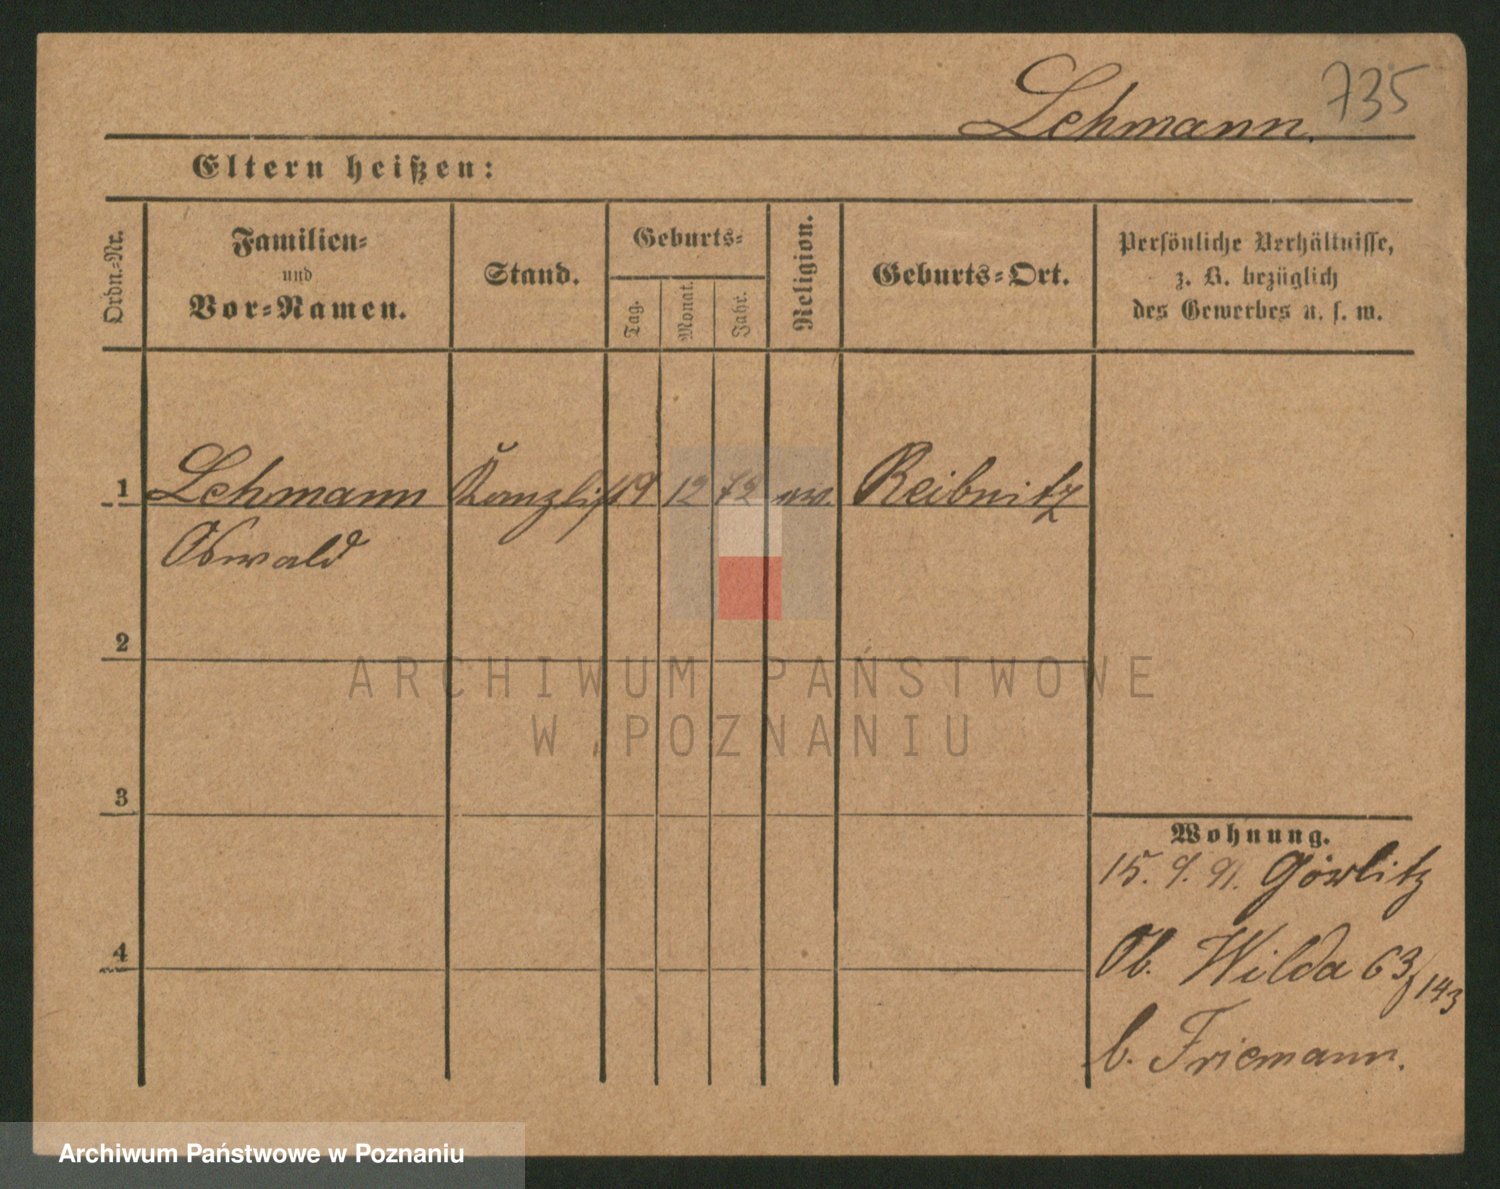 735
Lehmann.
Eltern heißen:
Ordn.-Nr.
Familien-
und
Vor-Namen.
Stand.
Geburts-
Tag.
Monat.
Jahr.
Religion.
Geburts-Ort.
Persönliche Verhältnisse,
z. B. bezüglich
des Gewerbes u. s. w.
1 Lehmann Kanzlist 19 12 72 ev. Reibnitz
Oswald
2
3
4
Wohnung.
15. 9. 91. Görlitz
Ob. Wilda 63/143
b. Friemann.
ARCHIWUM PAŃSTWOWE
W POZNANIU
Archiwum Państwowe w Poznaniu